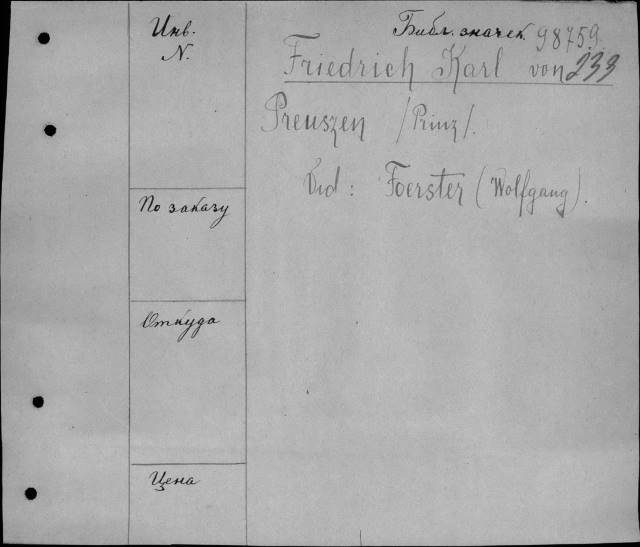 Инв.
N.
Библ. значек. 98759.
Friedrich Karl von 233
Preuszen /Prinz/.
Vid: Foerster (Wolfgang).
По заказу
Откуда
Цена